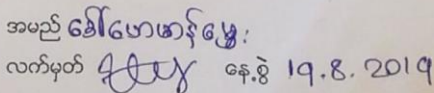 အမည် ဒေါ်ဟေမာန်မွှေး
လက်မှတ် နေ့စွဲ 19.8.2019